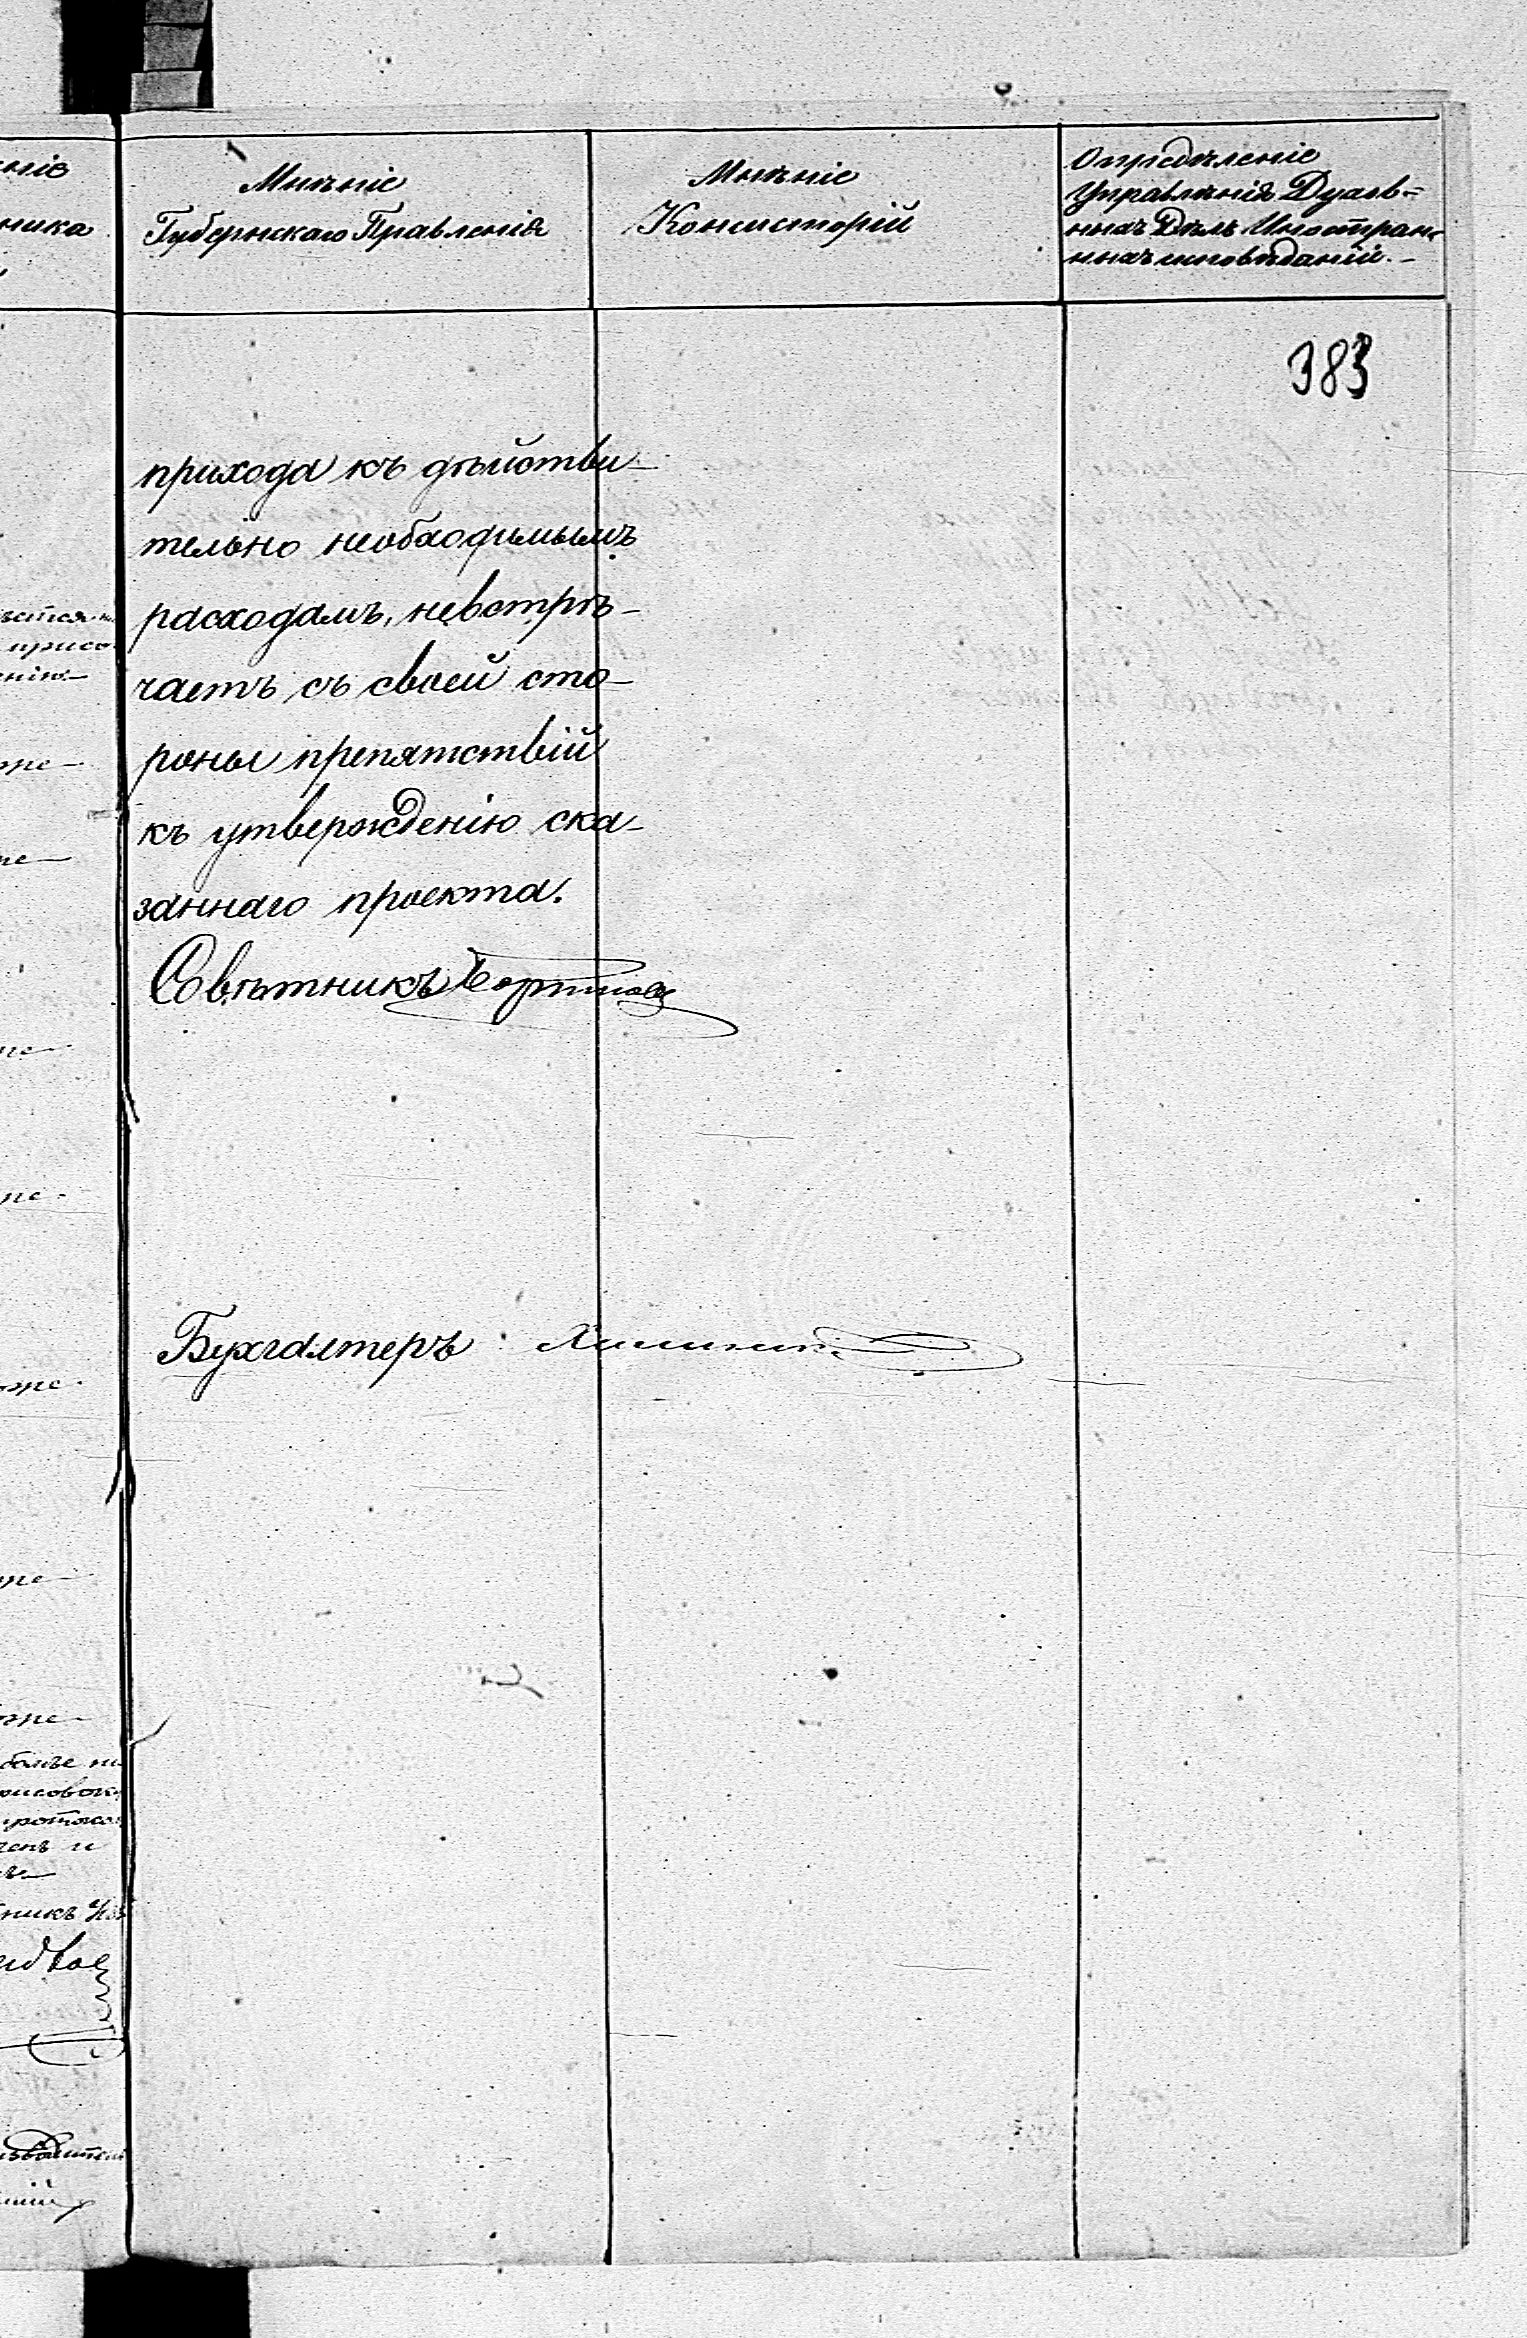 Мнѣніе
Губернскаго Правленія
Мнѣніе
Консисторій
Опредѣленіе
Управленія Духов=
ныхъ Дѣлъ Иностран-
ныхъ исповѣданій.-
383
прихода къ дѣйстви-
тельно необходимымъ
расходамъ, невстрѣ-
чаетъ съ своей сто-
роны препятствій
къ утвержденію ска-
заннаго проекта.
Совѣтникъ
Бухгалтеръ
ніе
ника
оже